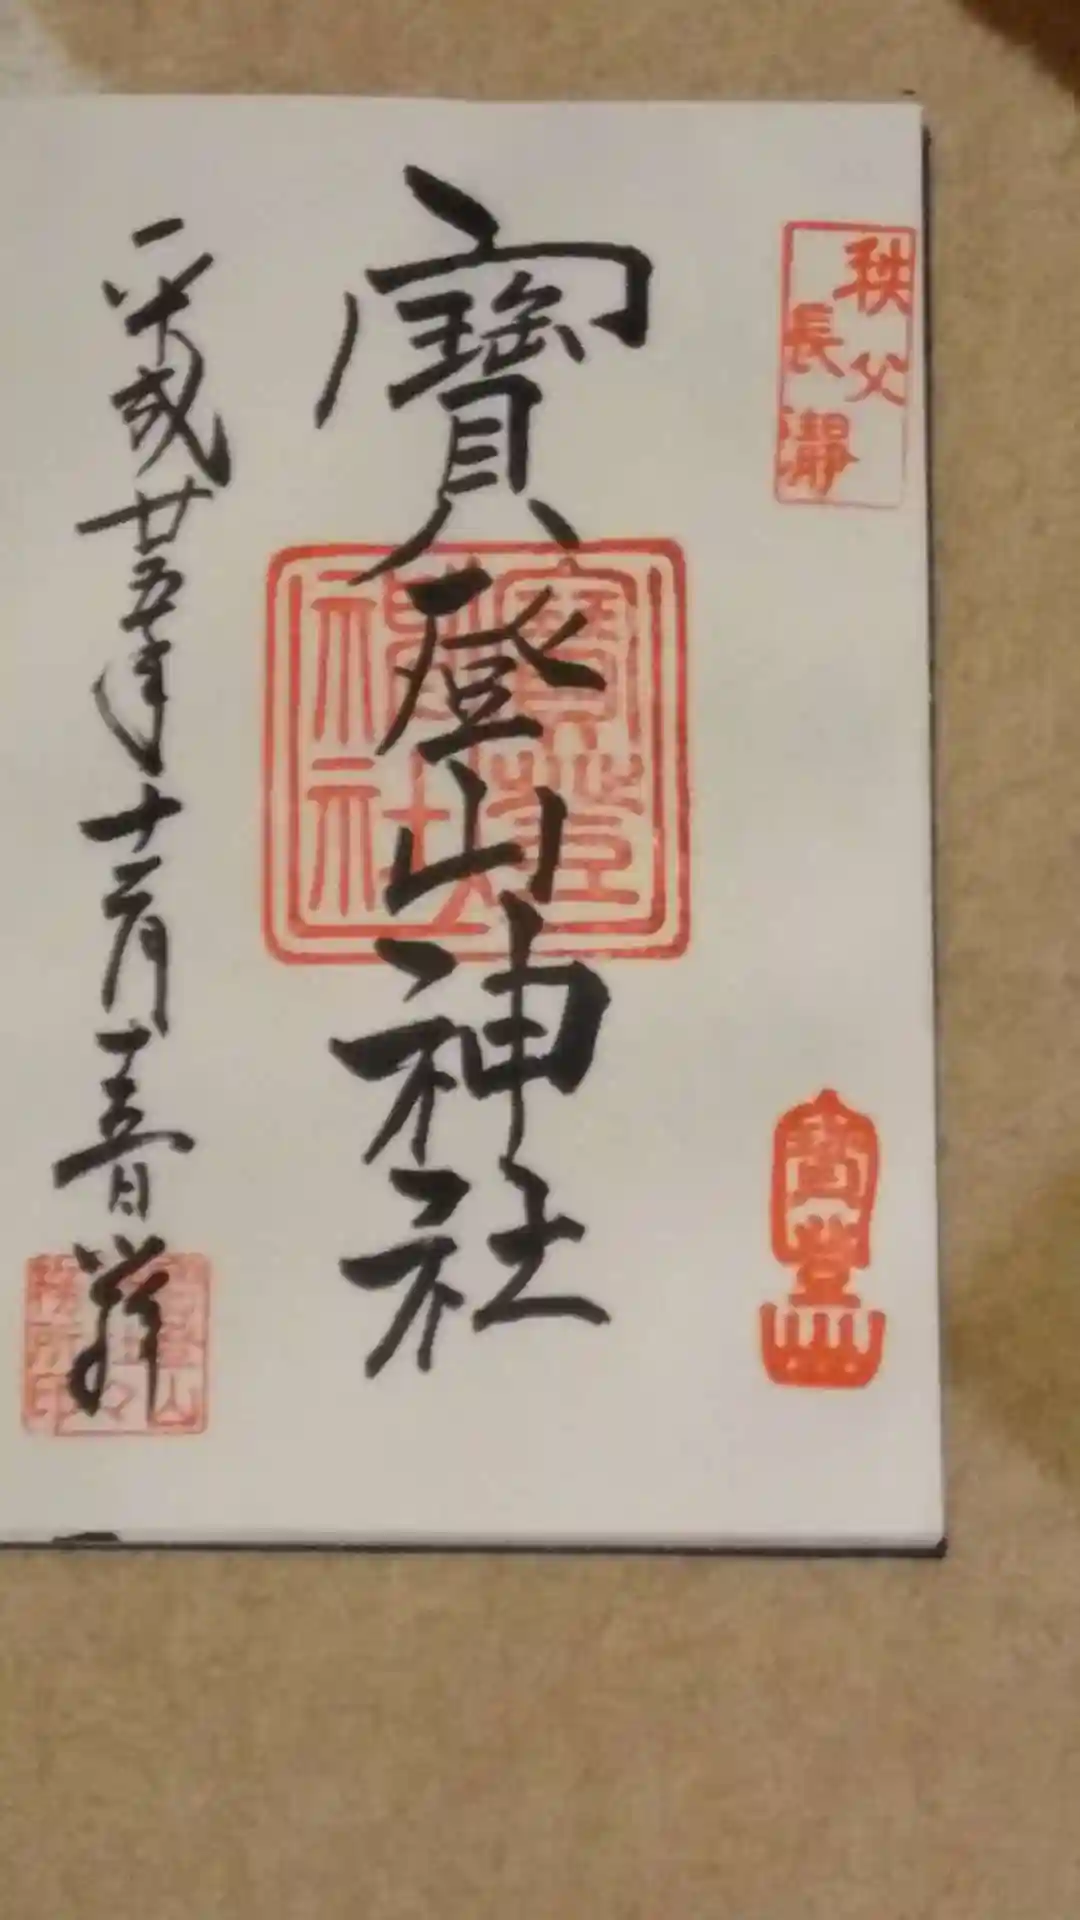 秩父
長瀞
寶登山神社
寶登山
神社
寶登山
平成廿五年十二月十五日拝
寶登山
社々
務所印